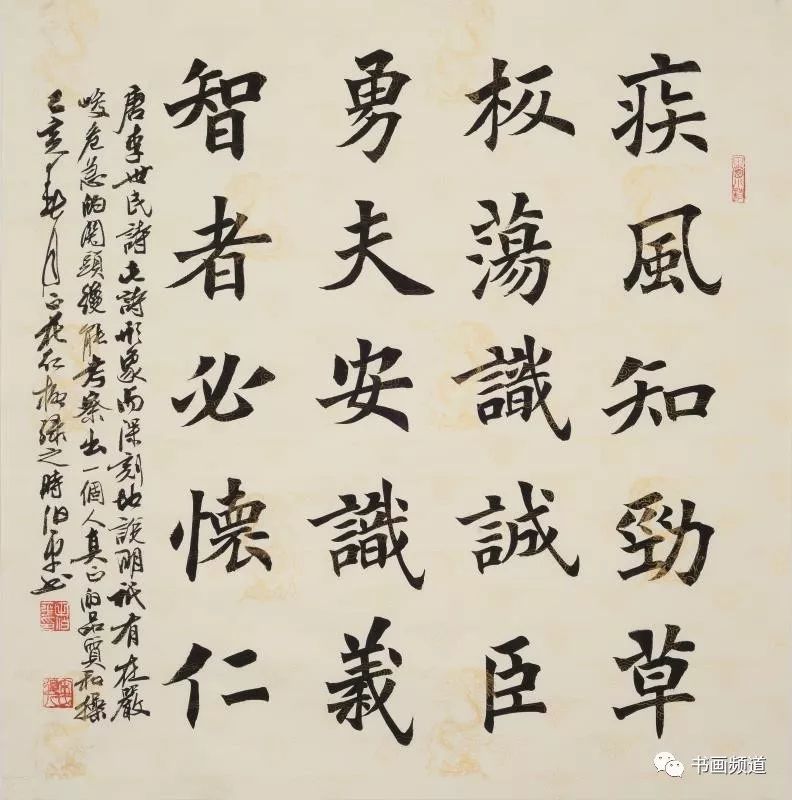 疾風知勁草
板蕩識誠臣
勇夫安識義
智者必懷仁
唐李世民詩此詩形象而深刻地說明祇有在嚴
峻危急的関頭纔能考察出一個人真正的品質和操
己亥春月正花紅柳綠之時伯平书
书画频道